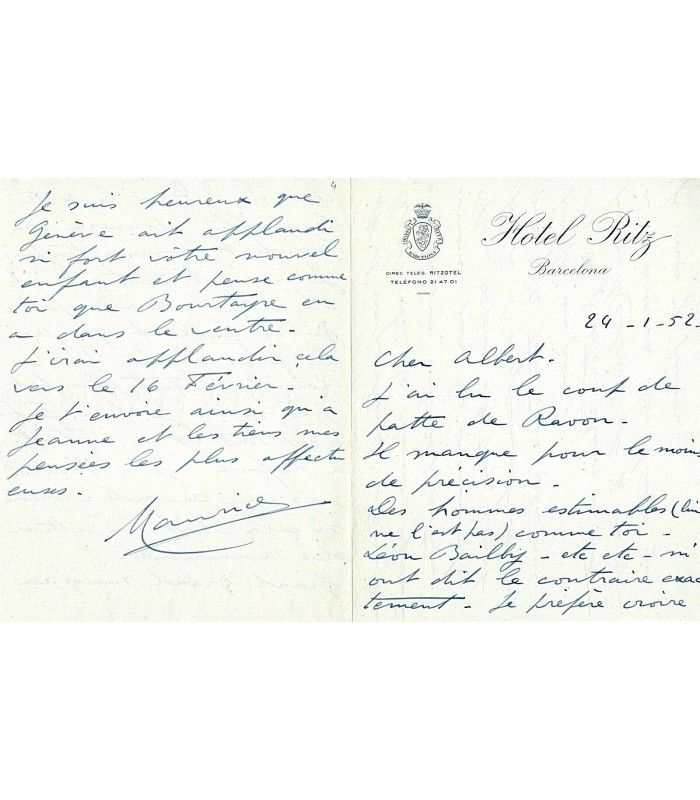 4
Je suis heureux que
Genève ait applaudi
si fort vôtre nouvel
enfant et pense comme
toi que Bourtayre en
a dans le ventre.
J'irai applaudir cela
vers le 16 Février.
Je t'envoie ainsi qu'a
Jeanne et les tiens mes
pensées les plus affectu
euses.
Maurice
Hotel Ritz
Barcelona
BARCELONA
DIREC. TELEG. RITZOTEL
TELÉFONO 21 47 01
24 - 1 - 52.
Cher Albert.
J'ai lu le coup de
patte de Ravon.
Il manque pour le moin
de précision.
Des hommes estimables (lui
ne l'est pas) comme toi -
Léon Bailby - etc etc - m'
ont dit le contraire exac
tement - Je préfère croire